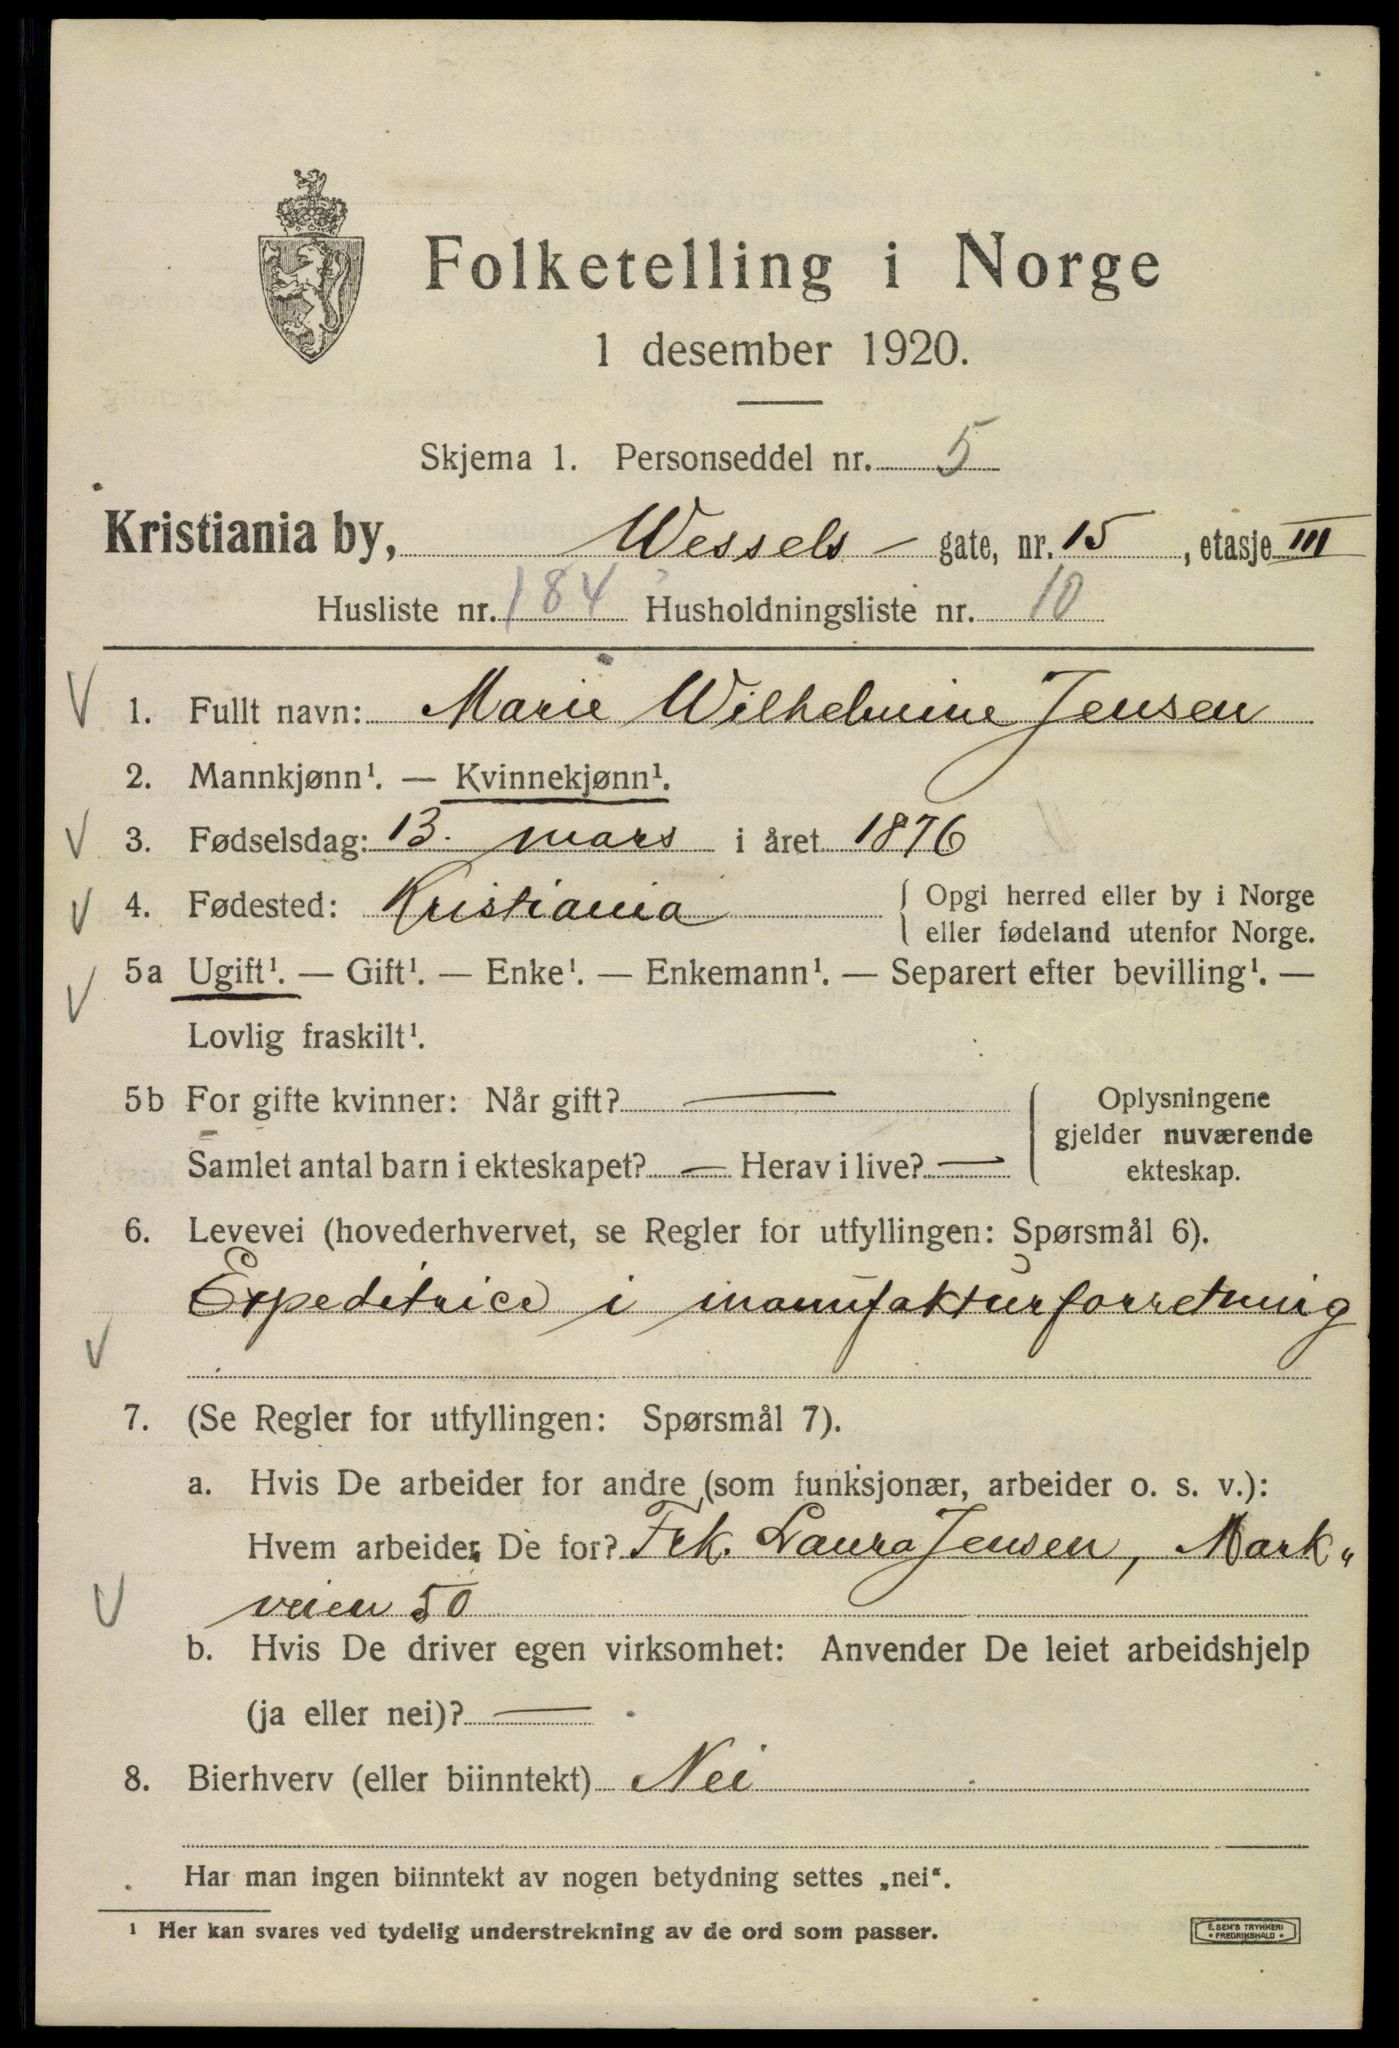 Folketelling i Norge
1 desember 1920.
Skjema 1. Personseddel nr. 5
Kristiania by, Wessels- gate, nr. 15, etasje III
Husliste nr. 184 Husholdningsliste nr. 10
1. Fullt navn: Marie Wilhelmine Jensen
2. Mannkjønn¹. — Kvinnekjønn¹.
3. Fødselsdag: 13. mars i året 1876
4. Fødested: Kristiania { Opgi herred eller by i Norge
eller fødeland utenfor Norge.
5a Ugift¹. — Gift¹. — Enke¹. — Enkemann¹. — Separert efter bevilling¹. —
Lovlig fraskilt¹.
5b For gifte kvinner: Når gift? —
Samlet antal barn i ekteskapet? — Herav i live? —
Oplysningene
gjelder nuværende
ekteskap.
6. Levevei (hovederhvervet, se Regler for utfyllingen: Spørsmål 6).
Expeditrice i manufakturforretning
7. (Se Regler for utfyllingen: Spørsmål 7).
a. Hvis De arbeider for andre (som funksjonær, arbeider o. s. v.):
Hvem arbeider De for? Frk. Laura Jensen, Mark„
veien 50
b. Hvis De driver egen virksomhet: Anvender De leiet arbeidshjelp
(ja eller nei)? —
8. Bierhverv (eller biinntekt) Nei
Har man ingen biinntekt av nogen betydning settes „nei“.
¹ Her kan svares ved tydelig understrekning av de ord som passer.
E. SEM'S TRYKKERI
• FREDRIKSHALD •